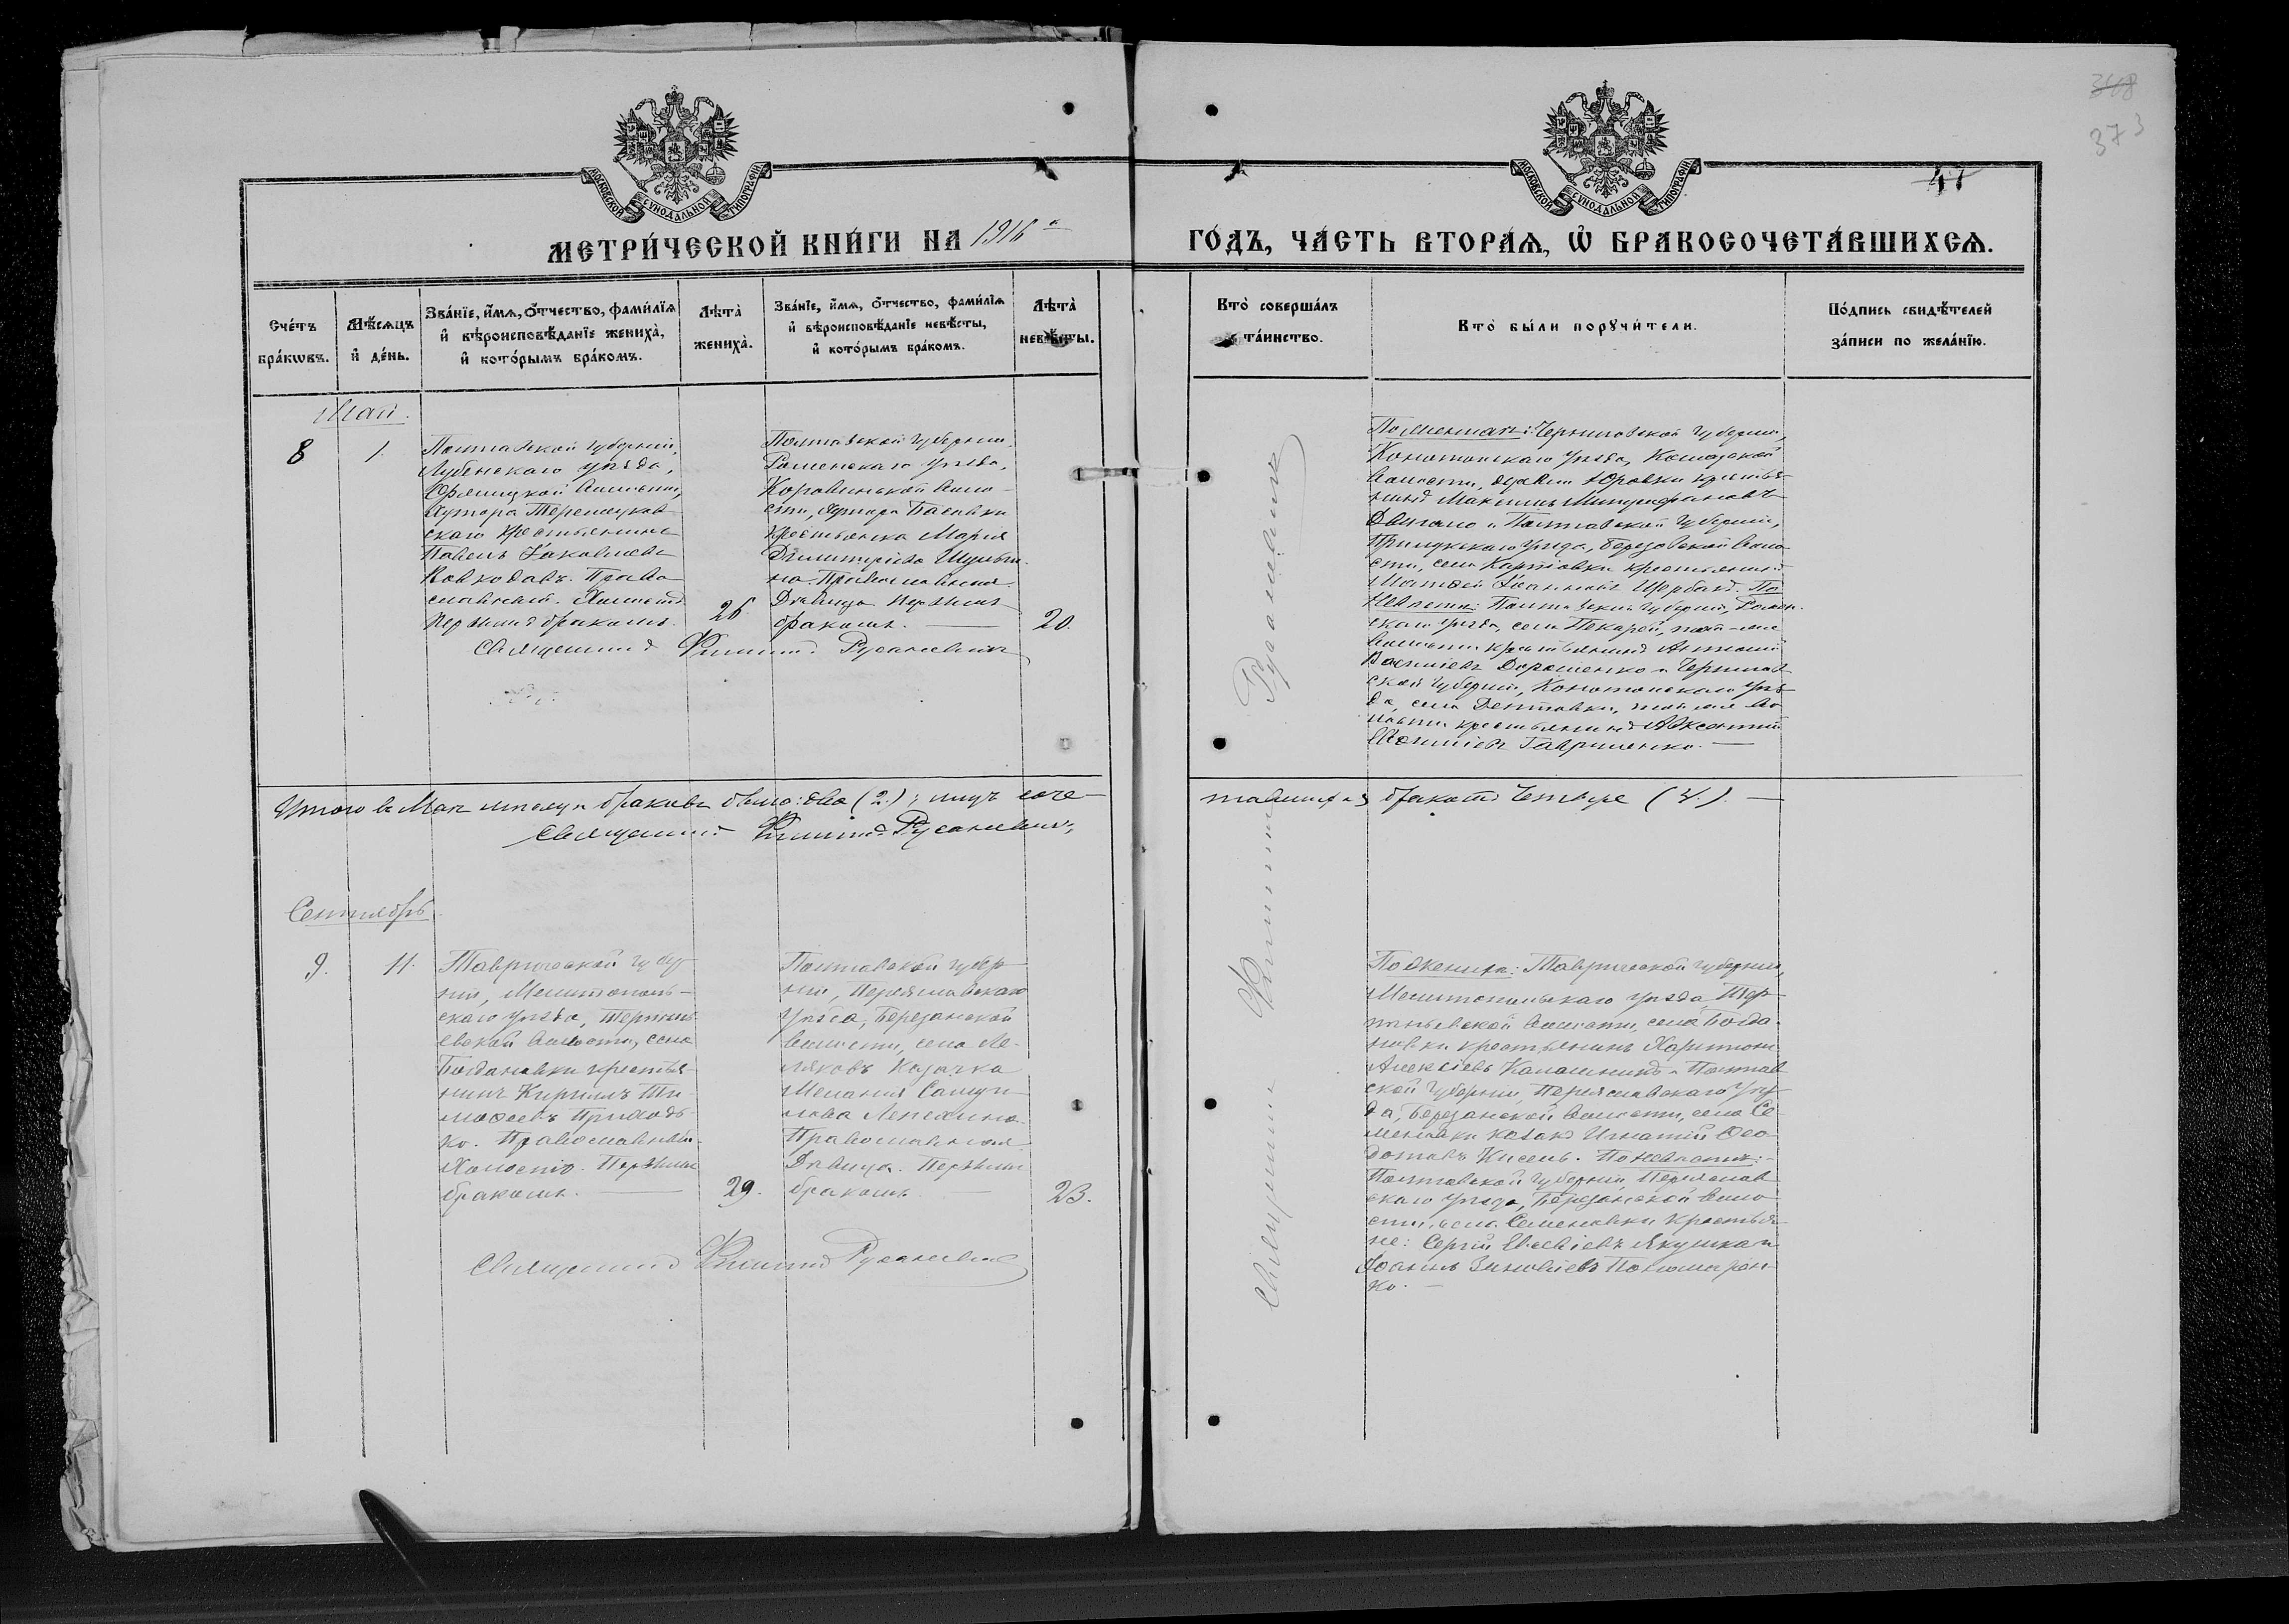 368
373
41
МОСКОВСКОЙ СУНОДАЛЬНОЙ ТИПОГРАФІИ
МОСКОВСКОЙ СУНОДАЛЬНОЙ ТИПОГРАФІИ
МЕТРИ́ЧЕСКОЙ КНИ́ГИ НА 1916 й
ГО́ДЪ, ЧА́СТЬ ВТОРА́Ѧ, Ѡ҆ БРАКОСОЧЕТА́ВШИХСѦ.
Сче́тъ бра́ковъ.
Мѣ́сѧцъ и҆ де́нь.
Зва́нїе, и҆́мѧ, ѻ҆́тчество, фами́лїѧ
и҆ вѣроисповѣ́данїе жениха̀,
и҆ кото́рымъ бра́комъ.
Лѣта̀ жениха̀.
Зва́нїе, и҆́мѧ, ѻ҆́тчество, фами́лїѧ
и҆ вѣроисповѣ́данїе невѣ́сты,
и҆ кото́рымъ бра́комъ.
Лѣта̀ невѣ́сты.
Кто̀ соверша́лъ та́инство.
Кто̀ бы́ли порꙋчи́тели.
По́дпись свидѣ́телей
за́писи по жела́нїю.
Май.
8
1
Полтавской губерніи,
Лубенскаго уѣзда,
волости,
Хутора
скаго крестьянинъ
Павелъ Іаковлевъ
Вовкодавъ. Право
славный. Холостъ
первымъ бракомъ.
26
Полтавской губерніи,
Роменскаго уѣзда,
Коровинской воло
сти, хутора Басовки
крестьянка Марія
Димитріева
на. Православная.
Дѣвица первымъ
бракомъ.
20.
Священникъ Филиппъ Русаневичъ
По женихѣ: Черниговской губерніи,
Конотопскаго уѣзда,
волости, деревни Юровки крестья
нинъ Максимъ Митрофановъ
и Полтавской губерніи,
Прилукскаго уѣзда, Березовской воло
сти, села Карповки крестьянинъ
Іоанновъ Щербакъ. По
Невѣстѣ: Полтавской губерніи, Ромен
скаго уѣзда, села Пекарей, той-же
волости крестьянинъ Антоній
Василіевъ Дорошенко и Чернигов
ской губерніи, Конотопскаго уѣз
да, села Дептовки, той же во
лости крестьянинъ Авксентій
Гавриленко.
Итого въ Маѣ мѣсяцѣ браковъ было: два (2.); лицъ соче
тавшихся бракомъ четыре (4.).
Священникъ Филиппъ Русаневичъ
Сентябрь
9.
11.
Таврической губер
ніи, Мелитополь
скаго уѣзда,
евской волости, села
Богдановки крестья
нинъ Кириллъ Ти
моѳеевъ Приходь
ко. Православный.
Холостъ. Первымъ
бракомъ.
29.
Полтавской губер
ніи, Переяславскаго
уѣзда, Березанской
волости, села Ле
ляковъ казачка
Меланія Самуи
лова
Православная
Дѣвица. Первымъ
бракомъ.
23.
Священникъ Филиппъ Русаневичъ
Священникъ Филиппъ Русаневичъ
По женихѣ: Таврической губерніи,
Мелитопольскаго уѣзда, Тер
волости, села Богда
новки крестьянинъ Харитонъ
Алексіевъ и Полтав
ской губерніи, Переяславскаго уѣз
да, Березанской волости, села Се
меновки козакъ Игнатій Ѳео
дотовъ Кисель. По невѣстѣ:
Полтавской губерніи, Переяслав
скаго уѣзда, Березанской воло
сти, села Семеновки крестья
не: Сергій Якушка и
Іоаннъ Зиновіевъ Пономарен
ко.